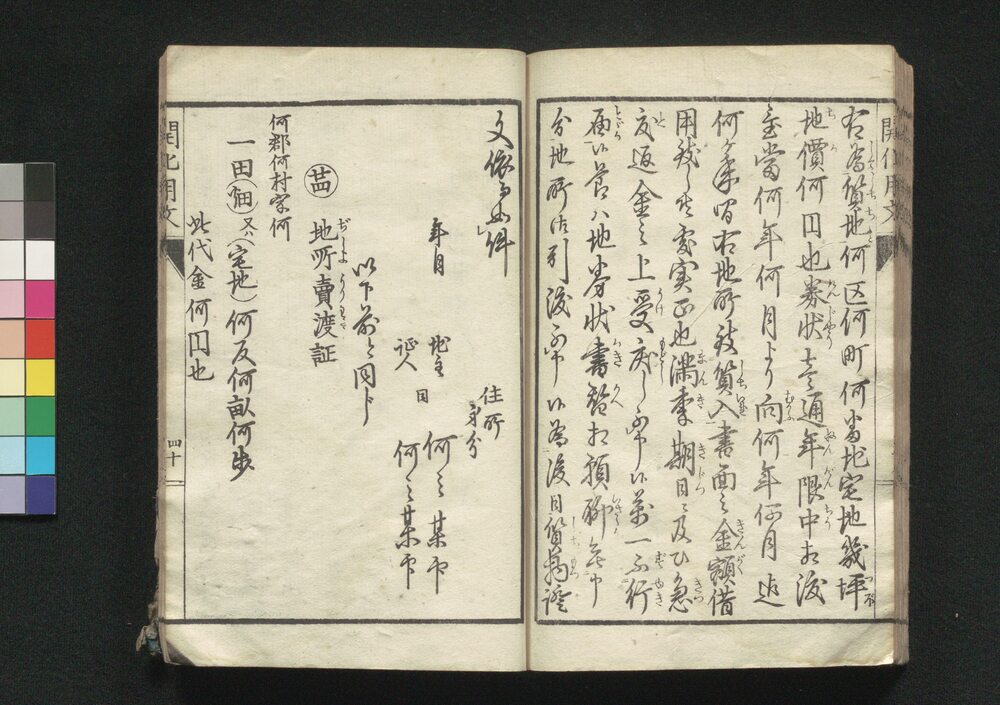 右為質地何区何町何番地宅地幾坪
地價何円也券状壱通年限中相渡
至當何年何月より向何年何月迄
何ヶ年間右地所致質入書面之金額借
用致候処実正也満季期日ニ及ひ急
度返金之上受戻し可申候万一不行
届候節ハ地券状書替相願聊無申
分地所御引渡可申候為後日質物證
文依而如件
年月
住所
身分
地主 何之某印
証人 同 何之某印
以下前と同し
地所賣渡証
何郡何村字何
一田(畑)又ハ(宅地)何反何畝何歩
此代金何円也
開化用文
四十